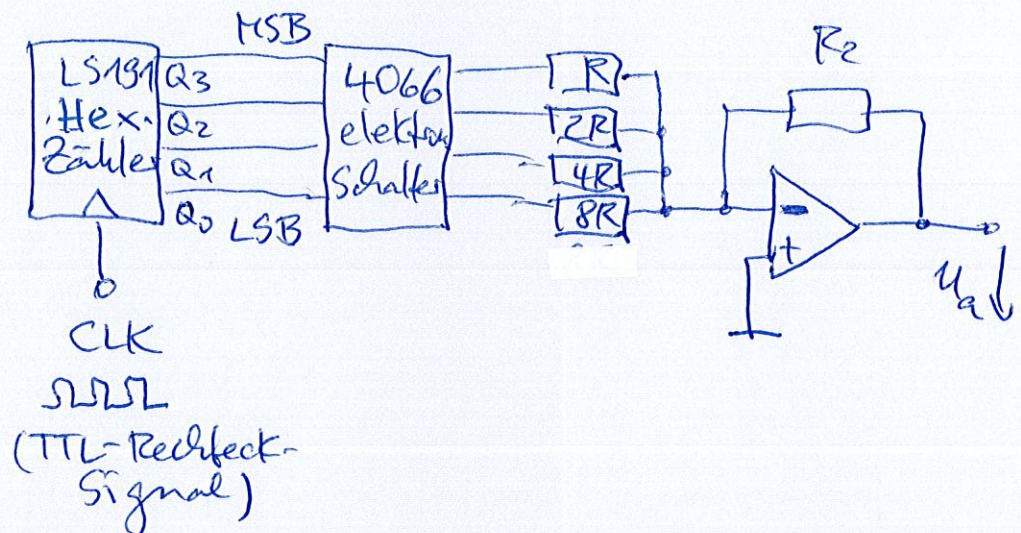 MSB
LS191
Hex.
Zähler
Q3
Q2
Q1
Q0
LSB
4066
elektron
Schalter
R
2R
4R
8R
R2
-
+
ua
CLK
(TTL-Rechteck-
Signal)